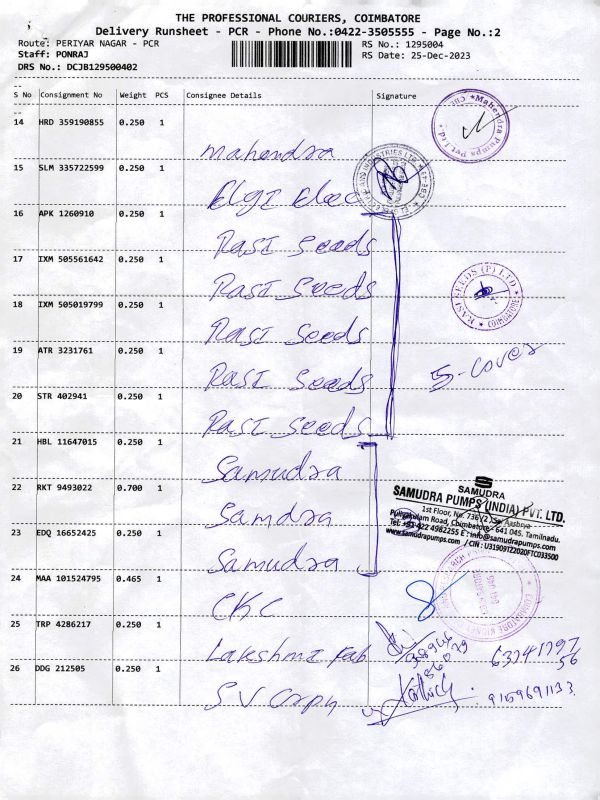 THE PROFESSIONAL COURIERS, COIMBATORE
Delivery Runsheet - PCR - Phone No.:0422-3505555 - Page No.:2
Route: PERIYAR NAGAR - PCR RS No.: 1295004
Staff: PONRAJ RS Date: 25-Dec-2023
DRS No.: DCJB129500402
--
S No Consignment No Weight PCS Consignee Details Signature
--
14 HRD 359190855 0.250 1
Mahendra Pumps Pvt Ltd. * CBE *
mahendra
15 SLM 335722599 0.250 1
Elgi Elec
16 APK 1260910 0.250 1
Rasi seeds
17 IXM 505561642 0.250 1
Rasi seeds
RASI SEEDS (P) LTD
18 IXM 505019799 0.250 1
Rasi seeds
19 ATR 3231761 0.250 1
Rasi seeds
5-cover
20 STR 402941 0.250 1
Rasi seeds
21 HBL 11647015 0.250 1
Samudra
22 RKT 9493022 0.700 1
Samdra
SAMUDRA
SAMUDRA PUMPS (INDIA) PVT. LTD.
1st Floor, No. 736/2
Puliyakulam Road, Coimbatore - 641 045. Tamilnadu.
Tel: +91 422 4982255 E : info@samudrapumps.com
www.samudrapumps.com / CIN : U31909TZ2020FTC033500
23 EDQ 16652425 0.250 1
Samudra
24 MAA 101524795 0.465 1
CKC
25 TRP 4286217 0.250 1
Lakshmi Fab
26 DDG 212505 0.250 1
SV Corpn
9159691133